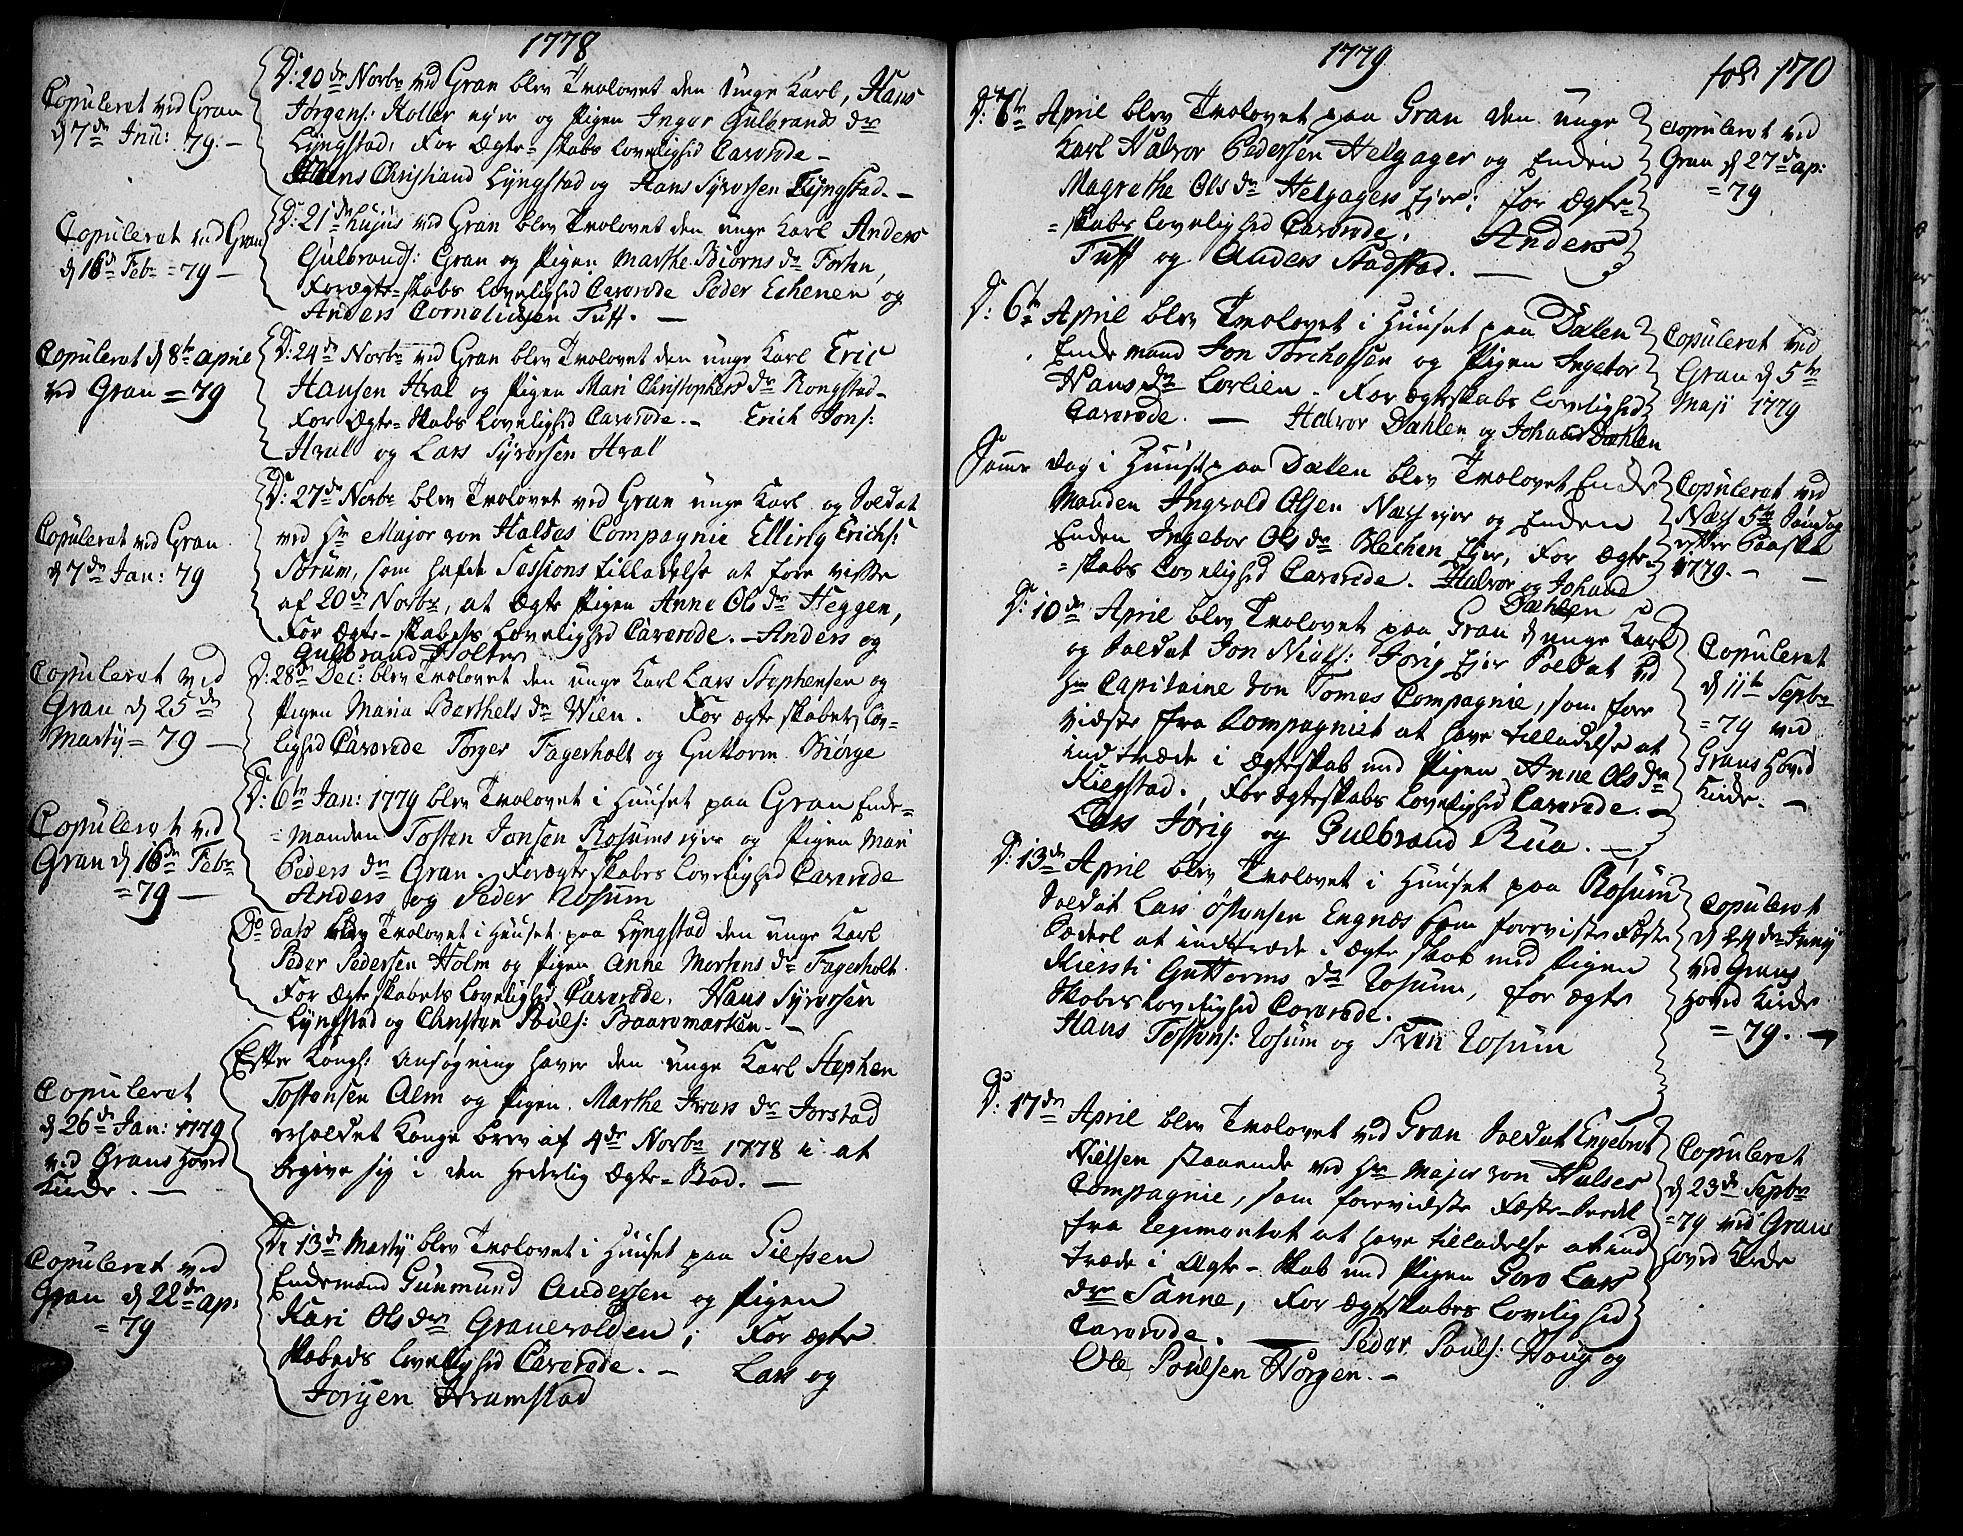 1778
Copulerat ved Gran
d 7de Jan: 79. –
D: 20de Novbr ved Gran blev Trolovet den Unge Karl, Hans
Jörgens: Koller ejer og Pigen Inger Gulbrands dr
Lyngstad, For Ægte-skabs Lovelighed Caverede –
Hans Christiand Lyngstad og Hans Syversen Lyngstad. –
Copulerat ved Gran
d 16de Feb = 79 –
D: 21de hujus ved Gran blev Trolovet den unge Karl Anders
Gulbrands: Gran og Pigen Marthe Biörns dr
For ægte-skabs Lovelighed Caverede Peder Echenen og
Anders Cornelius en Tuff. –
Copulerat d 8te april
ved Gran = 79
D: 24de Novbr ved Gran blev Trolovet den unge Karl Eric
Hansen Hval og Pigen Mari Christophers dr Rongstad –
For Ægte-Skabs Lovelighed Caverede. – Erich Jons:
Hval og Lars Syversen Hval
Copulerat ved Gran
d 7de Jan: 79
D: 27de Novbr blev Trolovet ved Gran unge Karl og Soldat
ved Hr Major von Haldes Compagnie Elling Erichs:
Sörum, som hafde Sessions tilladelse at fore viise
af 20de Novbr, at Ægte Pigen Anne Ols dr Heggen,
For Ægte-skabets Lovelighed Caverede. – Anders og
Gulbrand Holter
Copulerat ved
Gran d 25de
Martij = 79 –
D: 28de Dec: blev Trolovet den unge Karl Lars Stephensen og
Pigen Maria Barthels dr Wien. For ægte skabets Lov-
lighed Caverede Torger Fagerholt og Guttorm Biörge
Copulerat ved
Gran d 16de Feb
= 79 –
D: 6te Jan: 1779 blev Trolovet i Huuset paa Gran Enke-
= manden Tosten Jonsen Rosums ejer og Pigen Mari
Peders dr Gran. For ægte skabes Lovelighed Caverede
Anders og Peder Rosum
Do dato blev Trolovet i Huuset paa Lyngstad den unge Karl
Peder Pedersen Holm og Pigen Anne Mortens dr Fagerholt.
For ægte skabets Lovelighed Caverede. Hans Syversen
Lyngstad og Christen Pouls: Baaremarken. –
Copulerat
d 26de Jan: 1779
ved Grans Hoved
Kirke. –
Efter Kongl: Ansögning haver den unge Karl Stephen
Tostensen Alm og Pigen Marthe Ivers dr Jorstad
erholdet Konge brev af 4de Novbr 1778 i at
begive sig i den Hederlig Ægte-Stad. –
Copulerat ved
Gran d 22de ap:
= 79
D: 13de Martij blev Trolovet i Huuset paa
Enkemand Gunmund Andersen og Pigen
Kari Ols dr Granevolden; For ægte
Skabeds Lovelighed Caverede. – Lars og
Jörgen Framstad
1779
fol: 170
D: 7te April blev Trolovet paa Gran den unge
Karl Halvor Pedersen Helgager og Enken
Magrethe Ols dr Helgagers Ejer; for Ægte-
= skabs Lovelighed Caverede. Anders
Tuff og Anders Stadstad. –
Copulerat ved
Gran d 27de ap:
= 79
D: 6te April blev Trolovet i Huuset paa Dælen
Enke mand Jon og Pigen Ingebor
Hans dr Lorlien. For ægteskabs Lovelighed
Caverede. – Halvor Dæhlen og Johannes Dæhlen
Copulerat ved
Gran d 5te
Maji 1779
Samme Dag i Huuset paa Dælen blev Trolovet Enke
Manden Ingvald Olsen Næs ejer og Enken
Enken Ingebor Ols dr Blechen Ejer, For Ægte-
= skabs Lovelighed Caverede. Halvor og Johand
Dæhlen
Copulerat ved
Næs 5te Söndag
efter Paaske
1779. –
D: 10de April blev Trolovet paa Gran d unge Karl
og Soldat Jon Niels: Jorig Ejer Soldat ved
Hr Capitaine von Tomes Compagnie, som fore
vidste fra Compagniet at have tilladelse at
indtræde i Ægteskab med Pigen Anne Ols dr
Kiegstad., For ægteskabs Lovelighed Caverede. –
Lars Jorig og Gulbrand Rua. –
Copulerat
d 11te Sepbr
= 79 ved
Grans Hoved
Kirke. –
D: 13de April blev Trolovet i Huuset paa Rosum
Soldat Lars Östensen Engnæs som foreviste Fæste
Sedel at indtræde i ægte skab med Pigen
Kiersti Guttorms dr Rosum, for ægte
Skabes Lovelighed Caverede.
Hans Tostens: Rosum og Sven Rosum
Copulerat
d 24de Junij
ved Grans
Hoved Kirke
= 79. –
D: 17de April blev Trolovet ved Gran Soldat Engebret
Nielsen staaende ved Hr Major von Halses
Compagnie, som forevidste Fæste-Seedel
fra Regimentet at have tilladelse at ind
træde i Ægte-Skab med Pigen Goro Lars
dr Sanne, For Ægteskabes Lovelighed
Caverede. – Peder Pouls: Houg og
Ole Poulsen Horgen. –
Copulerat
d 23de Sepbr
= 79 ved Grans
Hoved Kirke